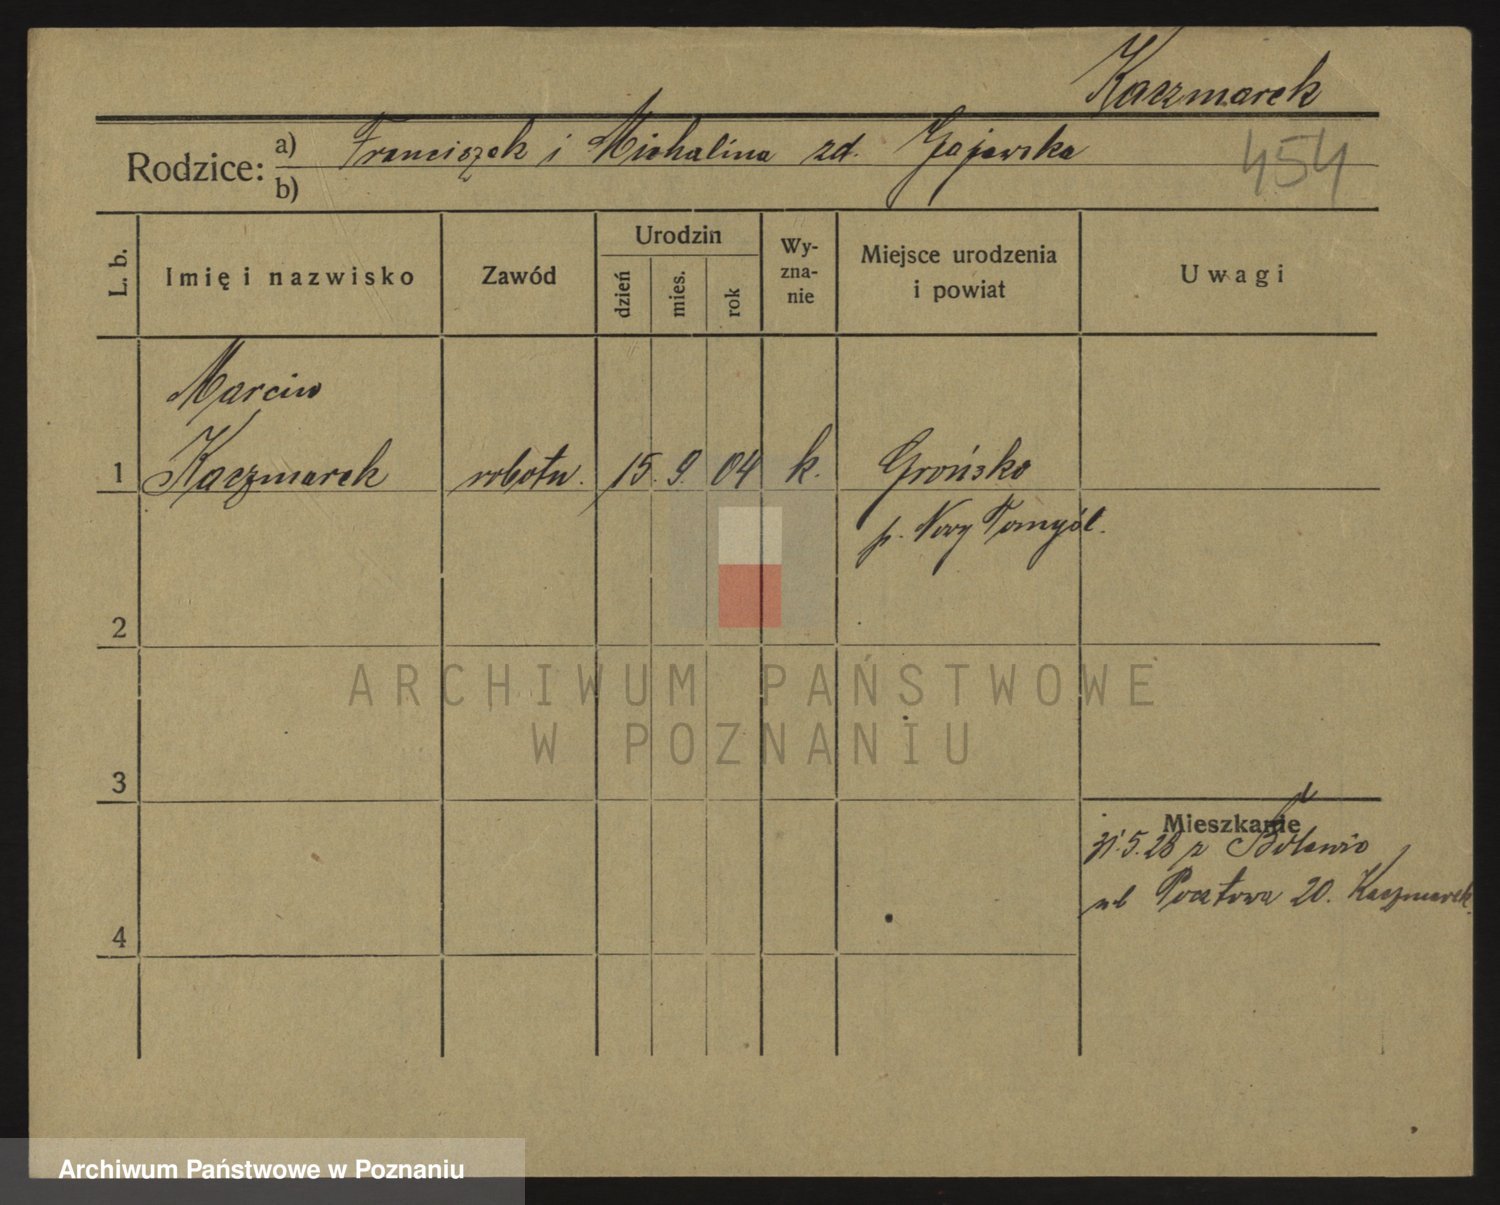 Kaczmarek
Rodzice: a) Franciszek i Michalina zd. Gajewska
454
b)
L. b.
Imię i nazwisko
Zawód
Urodzin
dzień
mies.
rok
Wy-
zna-
nie
Miejsce urodzenia
i powiat
Uwagi
Marcin
1 Kaczmarek robotn. 15. 9. 04 k. Grońsko
p. Nowy Tomyśl.
2
ARCHIWUM PAŃSTWOWE
W POZNANIU
3
Mieszkanie
31.5.28 z
ul Pocztowa 20. Kaczmarek
4
Archiwum Państwowe w Poznaniu